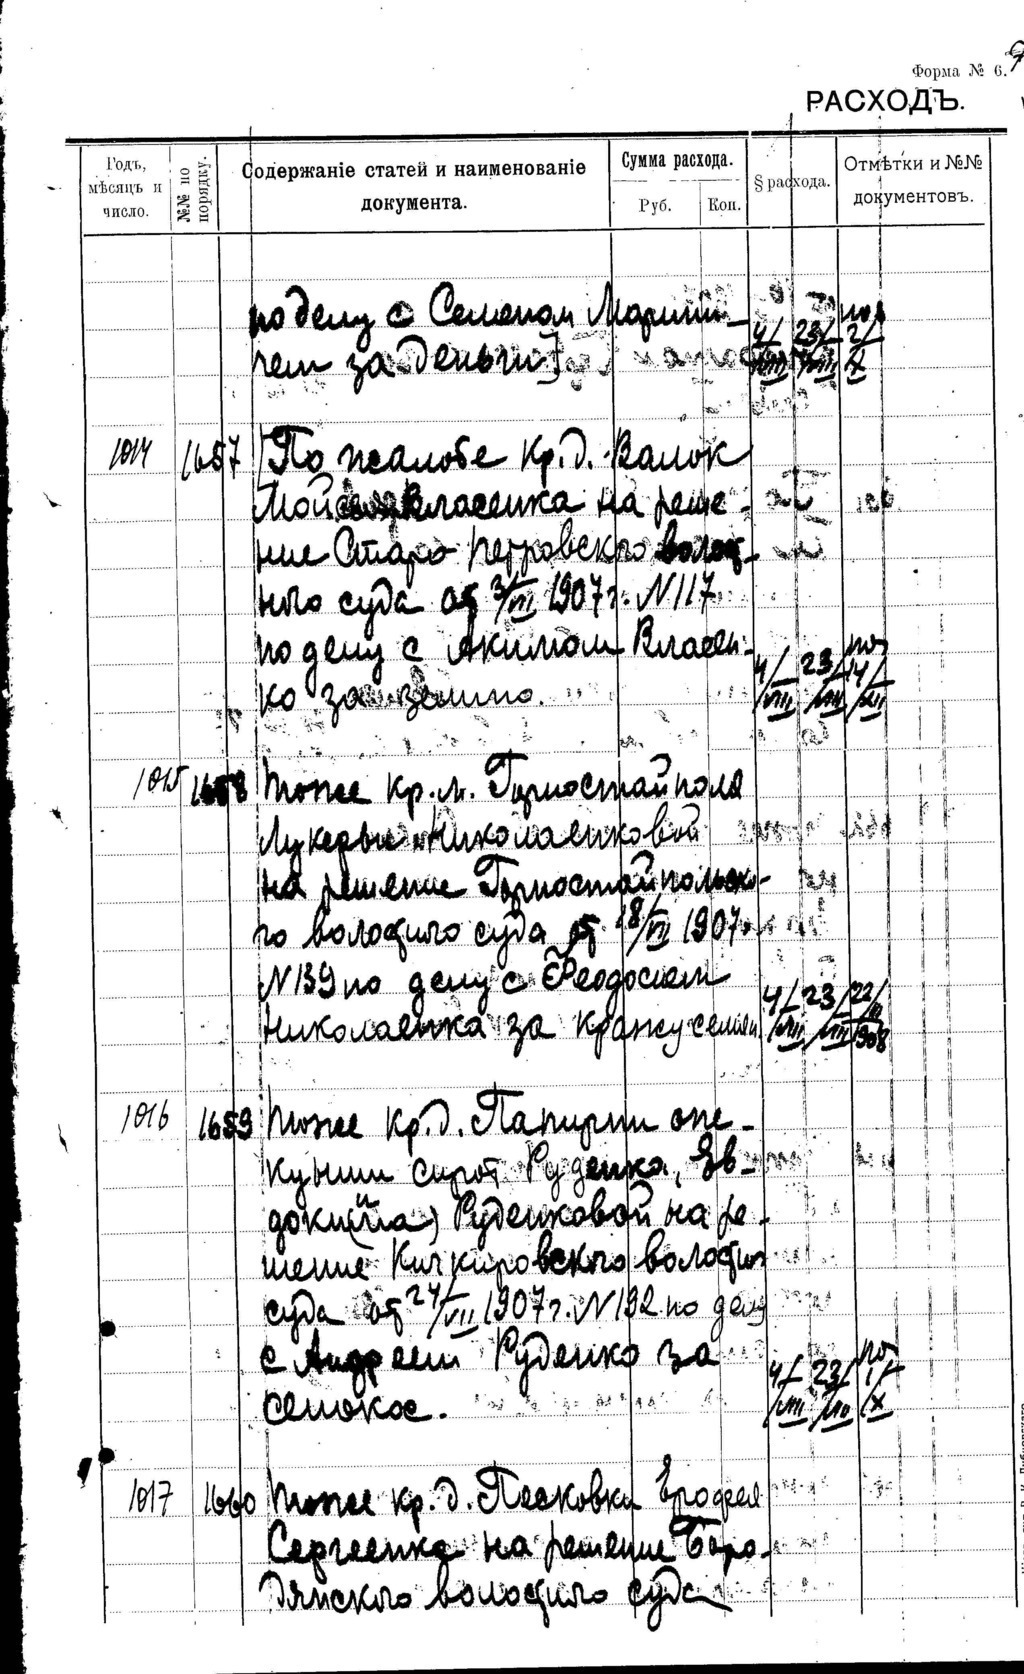 Форма № 6.
РАСХОДЪ.
Годъ, мѣсяцъ и число.
№№ по порядку.
Содержаніе статей и наименованіе документа.
Сумма расхода.
Руб.
Коп.
§ расхода.
Отмѣтки и №№ документов.
по делу с Семеном Марини-
чем за деньги]
4/VIII 23/VIII 2/X
1014 1657 По жалобе кр. д. Валок
Мойсея Власенка на реше-
ние Старо-Петровскго волост-
ного суда от 3/VII 1907 г. N 117
по делу с Акимом Власен-
ко за землю.
4/VIII 23/VIII 14/XII
1015 1658 тоже кр. м. Горностайполя
Лукерьи Николаенковой
на решение Горностайпольско-
го волостного суда от 18/VII 1907
N 139 по делу с Феодосием
Николаенка за кражу семян.
4/VIII 23/VIII 22/ 1908
1016 1659 тоже кр. д. Папирни опе-
кунши сирот Руденка, Ев-
докии) Руденковой на ре-
шение Кичкировскго волостн
суда от 24/VII 1907 г. N 192 по делу
с Андреем Руденко за
сенокос.
4/VIII 23/VIII 1/X
1017 1660 тоже кр. д. Песковки Ерофея
Сергеенка на решение Боро-
дянскго волостного суда